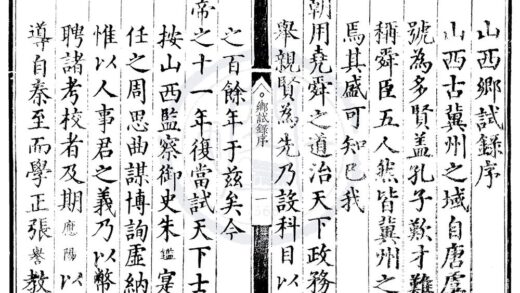 山西鄉試錄序
山西古冀州之域自唐虞
號為多賢盖孔子歎才難
稱舜臣五人然皆冀州之
焉其盛可知已我
朝用堯舜之道治天下政務
舉親賢為先乃設科目以
鄉試錄序
之百餘年于茲矣今
帝之十一年復當試天下士
按山西監察御史朱鑑寔
任之周思曲謀博詢虛納
惟以人事君之義乃以幣
聘諸考校者及期應陽以
導自秦至而學正張譽教